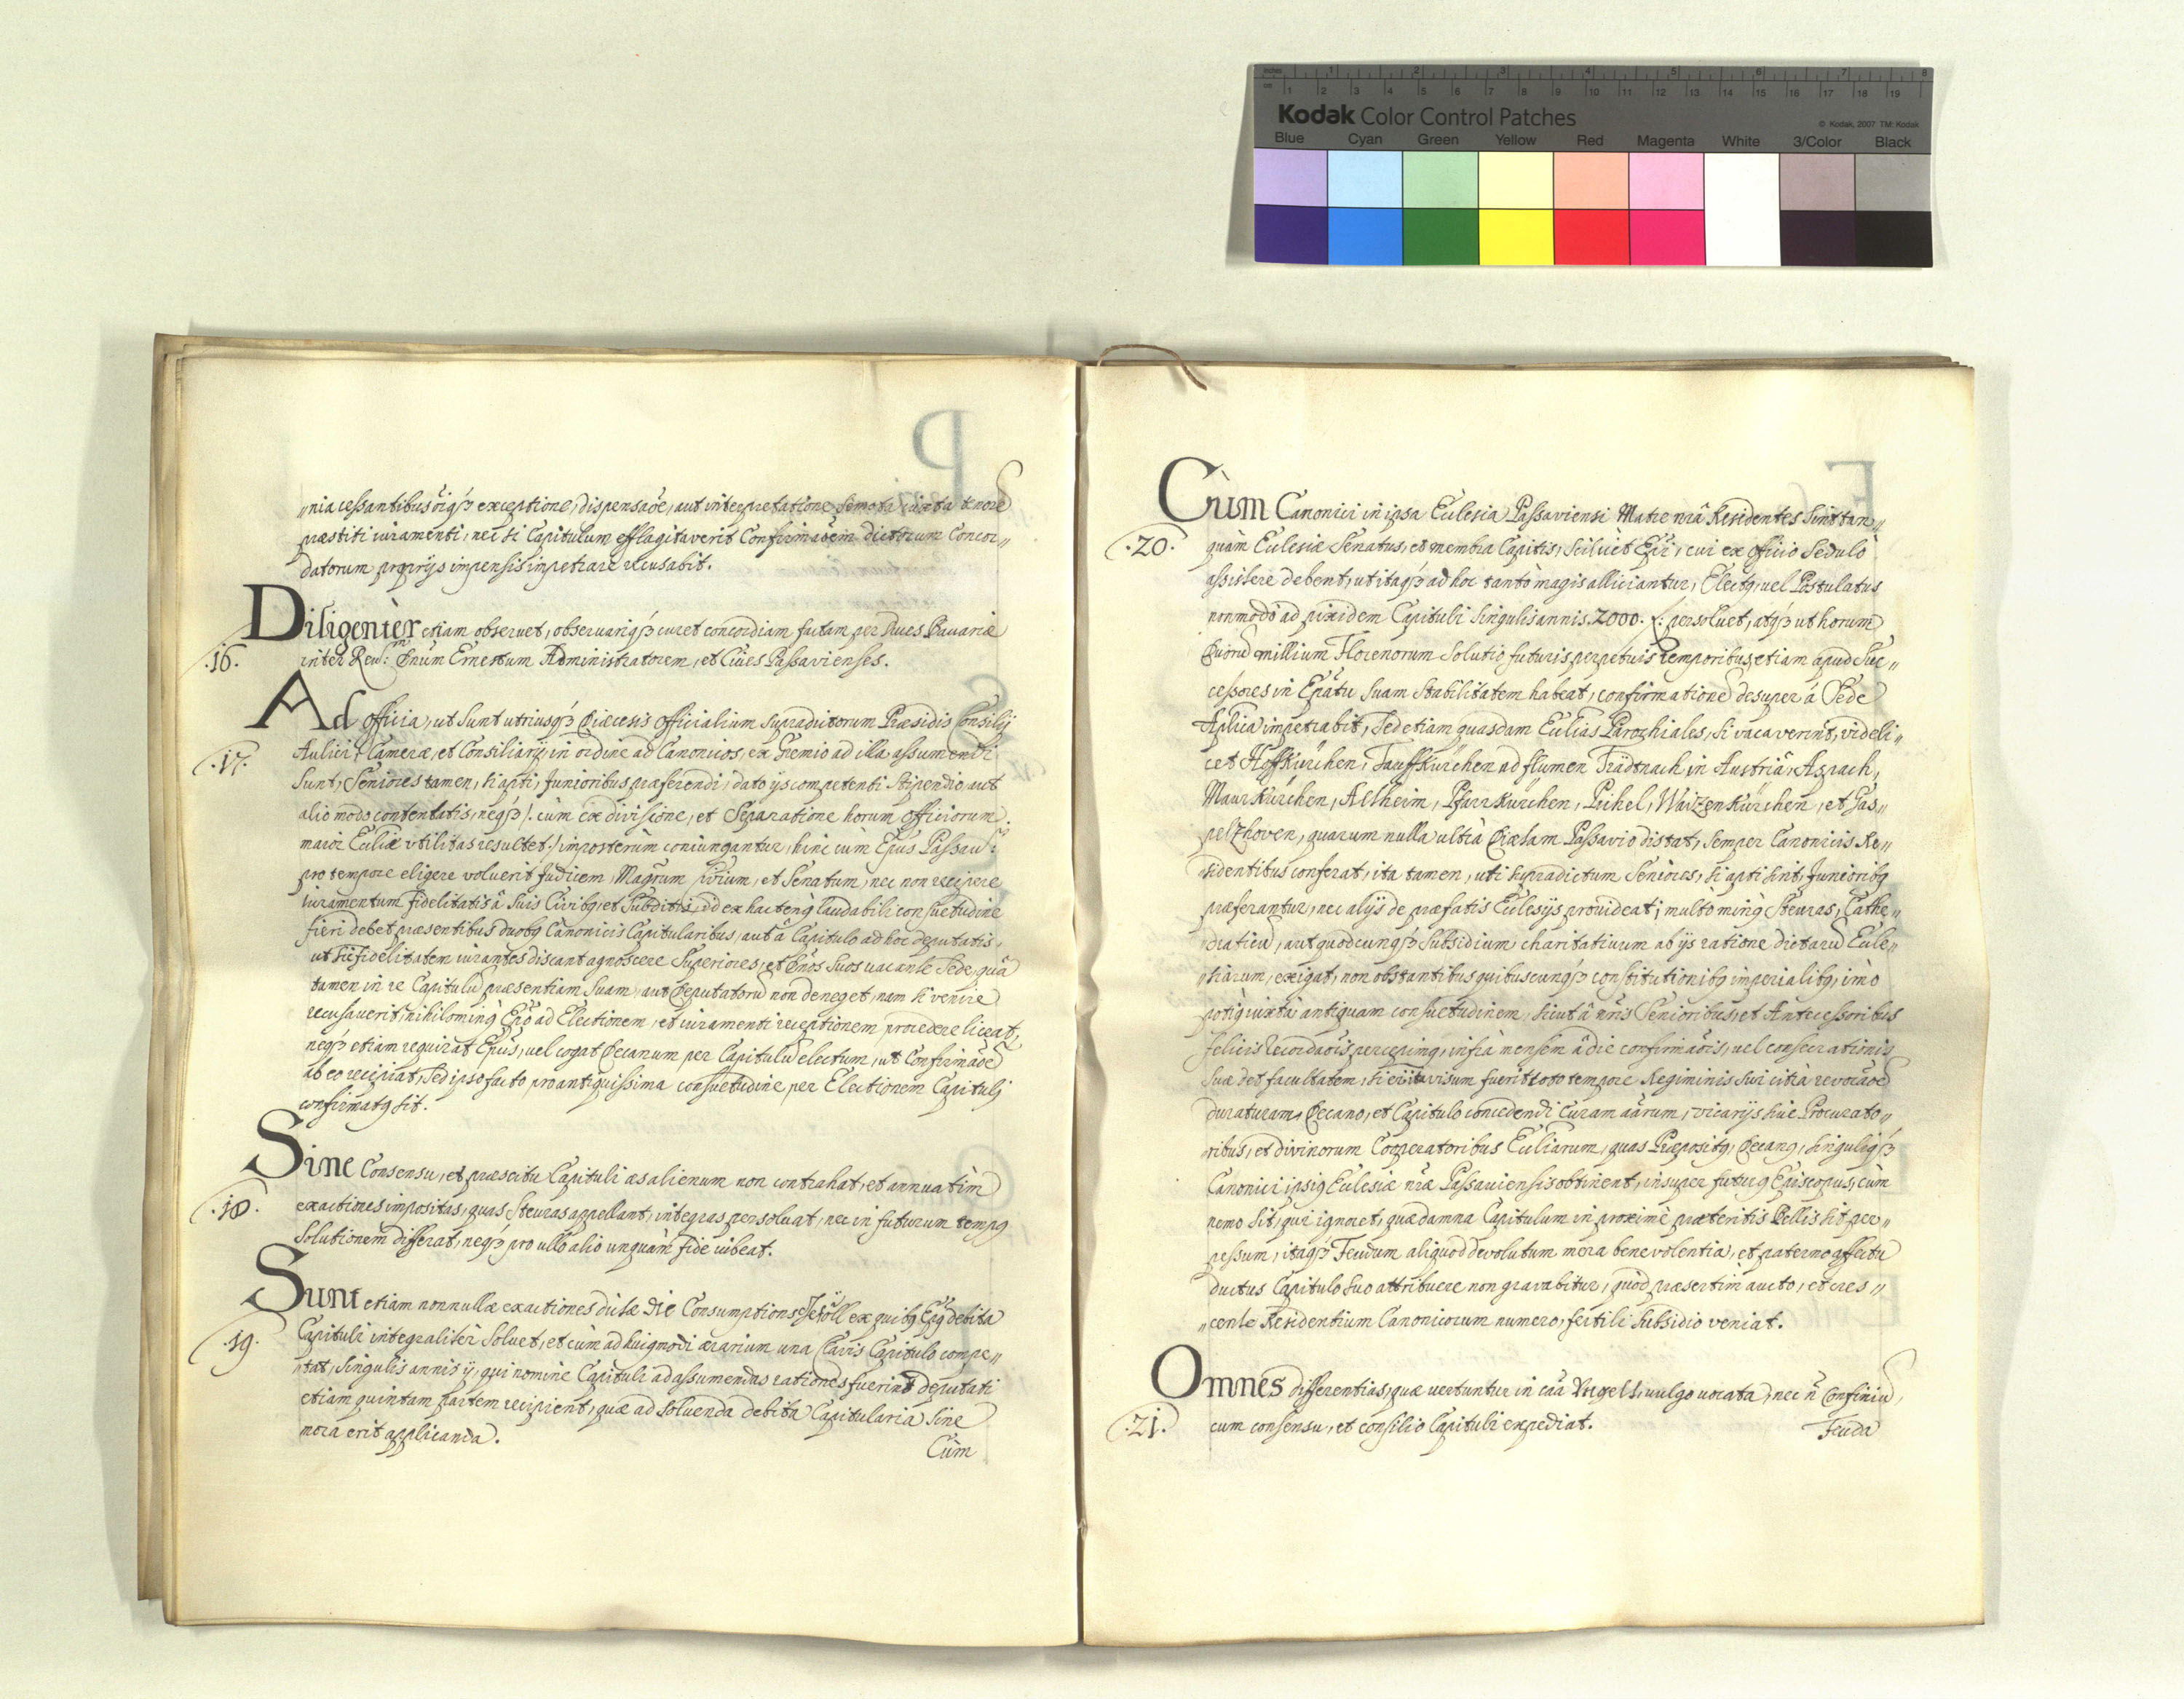 Kodak Color Control Patches
© Kodak, 2007 TM: Kodak
Blue Cyan Green Yellow Red Magenta White 3/Color Black
„nia cessantibus oĩgꝫ exceptione, dispensaõe, aut interpretatione semota iuxta tenorẽ
præstiti iuramenti, nec si Capitulum efflagitaverit Confirmaõem dictorum Concor„
datorum proprijs impensis impetrare recusabit.
Diligenter etiam observet, observariqꝫ curet concordiam factam per Duces Bavariæ
.16. inter Reu: Dnum Ernestum Administratorem, et Cives Passavienses.
Ad officia, ut sunt utriusqꝫ Diæcesis officialium supradictorum Præsidis Consilij
.17. Aulici, Cameræ, et Consiliarij in ordine ad Canonicos, ex Gremio ad illa assumendi
sunt, Seniores tamen, si apti, Junioribus præferendi, dato ijs competenti stipendio, aut
alio modo contentatis, neqꝫ /: cum ex divisione, et Separatione horum officiorum
maior Ecĩliæ vtilitas resultet :/ imposterum coniungantur, hinc cum Epũs Passau:
pro tempore eligere voluerit Judicem, Magrum Civium, et Senatum, nec non recipere
iuramentum fidelitatis â suis Civibꝯ, et Subditis, id ex hactenꝯ laudabili consuetudine
fieri debet præsentibus duobꝯ Canonicis Capitularibus, aut â Capitulo ad hoc deputatis,
ut sic fidelitatem iurantes discant agnoscere Superiores, et Dños suos vacante Sede, quã
tamen in re Capitulũ præsentiam suam, aut Deputatorũ non deneget, nam si venire
recusaverit, nihilominꝯ Epõ ad Electionem, et iuramenti receptionem procedere liceat,
neqꝫ etiam requirat Epũs, vel cogat Decanum per Capitulũ electum, ut Confirmaõẽ
ab eo recipiat, sed ipso facto pro antiquissima consuetudine per Electionem Capituli
confirmatꝯ sit.
Sine Consensu, et præscitu Capituli æs alienum non contrahat, et annuatim
.18. exactiones impositas, quas Steuras appellant, integras persoluat, nec in futurum tempꝯ
Solutionem differat, neqꝫ pro ullo alio unquam fide iubeat.
Sunt etiam nonnullæ exactiones dictæ die Consumptions Gefoll ex quibꝯ Epꝯ debita
.19. Capituli integraliter soluet, et cum ad huiꝯmodi ærarium una Clavis Capitulo compe„
„tat, singulis annis ij, qui nomine Capituli ad assumendas rationes fuerint deputati
etiam quintam partem recipient, quæ ad soluenda debita Capitularia sine
mora erit applicanda.
Cùm
Cùm Canonici in ipsa Ecclesia Passaviensi Matre nrã Residentes sint tan„
.20. quàm Ecclesiæ Senatus, et membra Capitis, scilicet Epĩ, cui ex officio sedulò
assistere debent, ut itaqꝫ ad hoc tantò magis alliciantur, Electꝯ, vel Postulatus
non modò ad pixidem Capituli singulis annis 2000. f: persoluet, atqꝫ ut horum
Duorũ millium Florenorum solutio futuris perpetuis temporibus, etiam apud Suc„
cessores in Epãtu suam stabilitatem habeat, confirmationẽ desuper á Sede
Aplica impetrabit, sed etiam quasdam Ecclias Parochiales, si vacaverint, videli„
cet Hoffkürchen, Tauffkürchen ad flumen Trädtnach in Austriâ, Aspach,
Maurkürchen, Altheim, Pfarrkürchen, Pichel, Waizenkürchen, et Gas„
pelzhoven, quarum nulla ultra Diætam Passavio distat, semper Canonicis Re„
„sidentibus conferat, ita tamen, uti supradictum Seniores, si apti sint, Junioribꝯ
præferantur, nec alijs de præfatis Ecclesijs provideat; multò minꝯ Steuras, Cathe„
„draticũ, aut quodcunqꝫ Subsidium charitativum ab ijs ratione dictarũ Eccle„
„siarum, exigat, non obstantibus quibuscunqꝫ constitutionibꝯ imperialibꝯ, imò
potiꝯ iuxta antiquam consuetudinem, sicut â nrĩs Senioribus, et Antecessoribus
felicis Recordaõis percepimꝯ, infrà mensem â die confirmaõis, vel consecrationis
suæ det facultatem, si ei ita visum fuerit toto tempore Regiminis sui citrà revocaõẽ
duraturam, Decano, et Capitulo concedendi Curam aãrum, vicarijs sive Procurato„
„ribus, et divinorum Cooperatoribus Eccliarum, quas Præpositꝯ, Decanꝯ, singuliqꝫ
Canonici ipsiꝯ Ecclesiæ nræ Passaviensis obtinent, insuper futurꝯ Episcopus, cùm
nemo sit, qui ignoret, quæ damna Capitulum in proximè præteritis Bellis sit per„
„pessum, itaqꝫ Feudum aliquod devolutum mera benevolentia, et paterno affectu
ductus Capitulo suo attribuere non gravabitur, quòd præsertim aucto, et cres„
„cente Residentium Canonicorum numero, fertili subsidio veniat.
Omnes differentias, quæ vertuntur in caã Vngelt, vulgo vocata, nec ñ Confiniũ,
.21. cum consensu, et consilio Capituli expediat.
Feuda